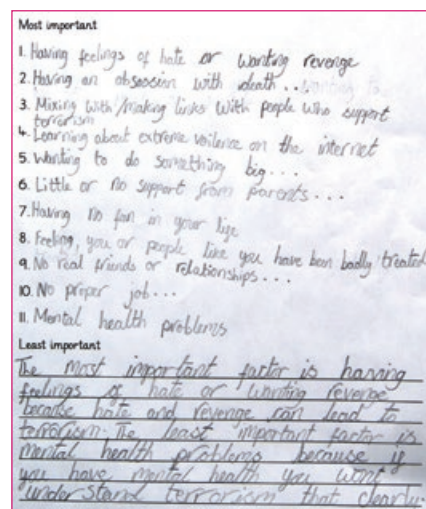 Most important
1. Having feelings of hate or wanting revenge
2. Having an obsession with death...
3. Mixing with/making links with people who support
terrorism
4. Learning about extreme voilence on the internet
5. Wanting to do something big...
6. Little or no support from parents...
7. Having no fun in your life
8. Feeling, you or people like you have been badly treated
9. No real friends or relationships...
10. No proper job...
11. Mental health problems
Least important
The most important factor is having
feelings of hate or wanting revenge
because hate and revenge can lead to
terrorism. The least important factor is
mental health problems because if
you have mental health you wont
understand terrorism that clearly.